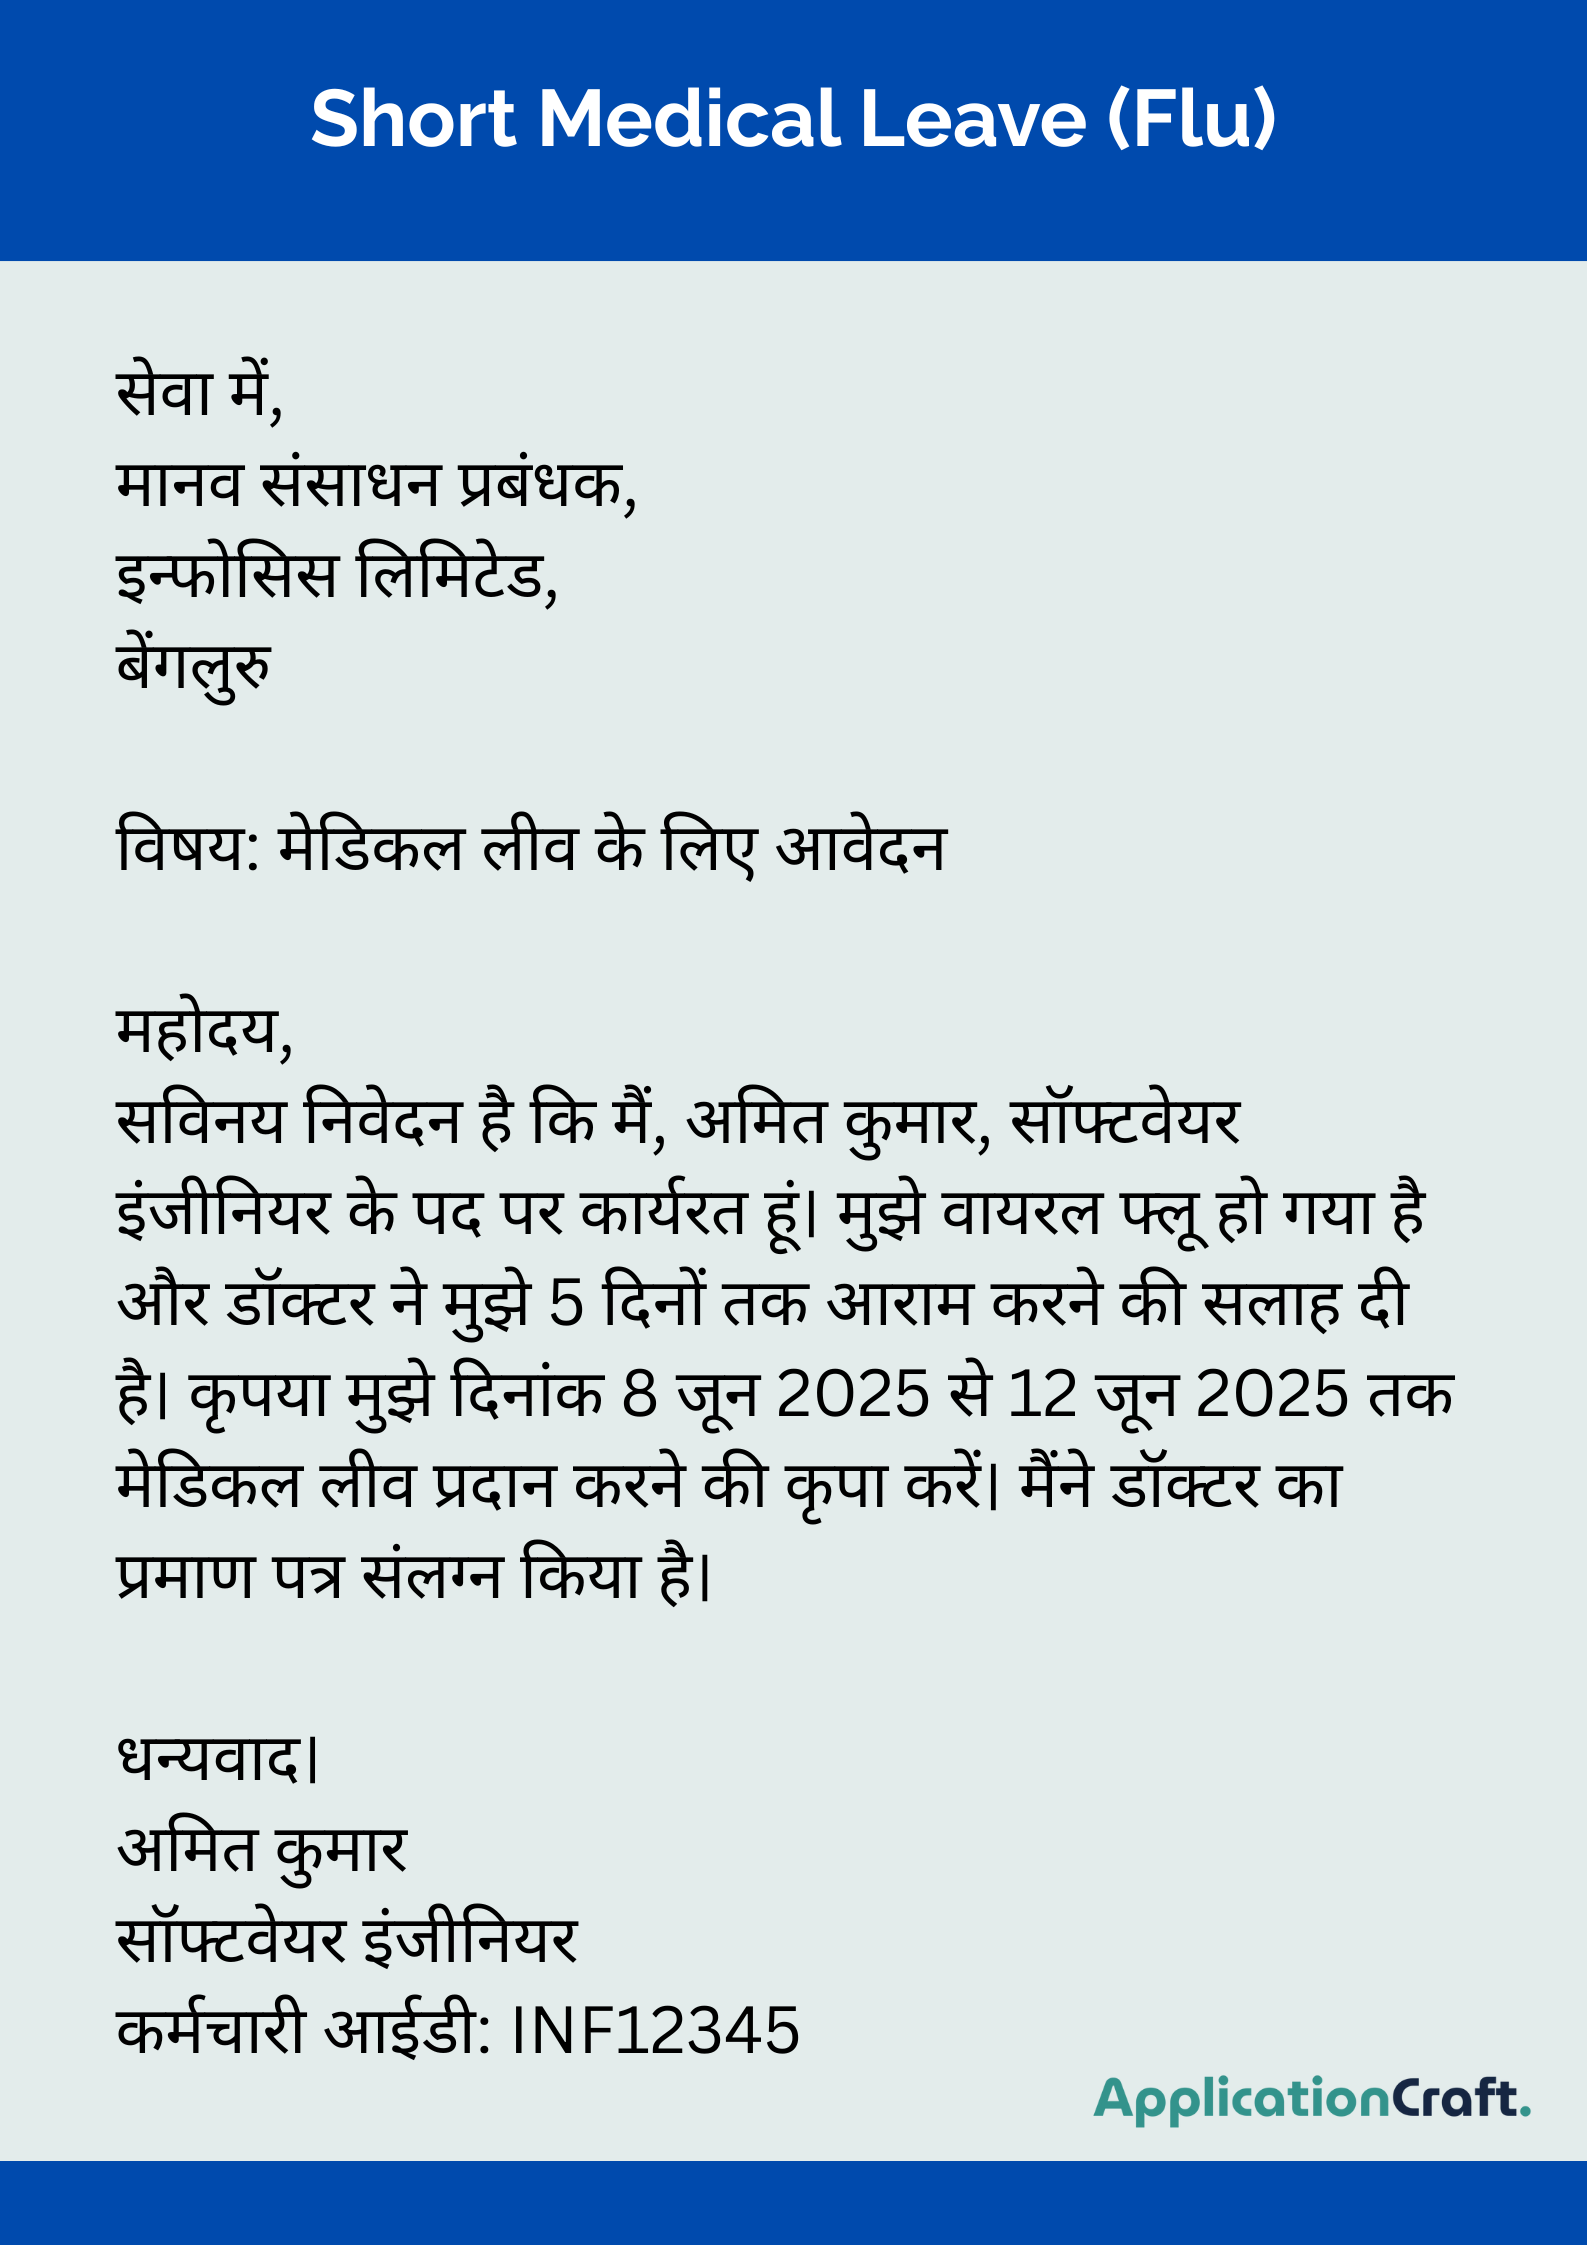 Short Medical Leave (Flu)
सेवा में,
मानव संसाधन प्रबंधक,
इन्फोसिस लिमिटेड,
बेंगलुरु
विषय: मेडिकल लीव के लिए आवेदन
महोदय,
सविनय निवेदन है कि मैं, अमित कुमार, सॉफ्टवेयर
इंजीनियर के पद पर कार्यरत हूं। मुझे वायरल फ्लू हो गया है
और डॉक्टर ने मुझे 5 दिनों तक आराम करने की सलाह दी
है। कृपया मुझे दिनांक 8 जून 2025 से 12 जून 2025 तक
मेडिकल लीव प्रदान करने की कृपा करें। मैंने डॉक्टर का
प्रमाण पत्र संलग्न किया है।
धन्यवाद।
अमित कुमार
सॉफ्टवेयर इंजीनियर
कर्मचारी आईडी: INF12345
ApplicationCraft.